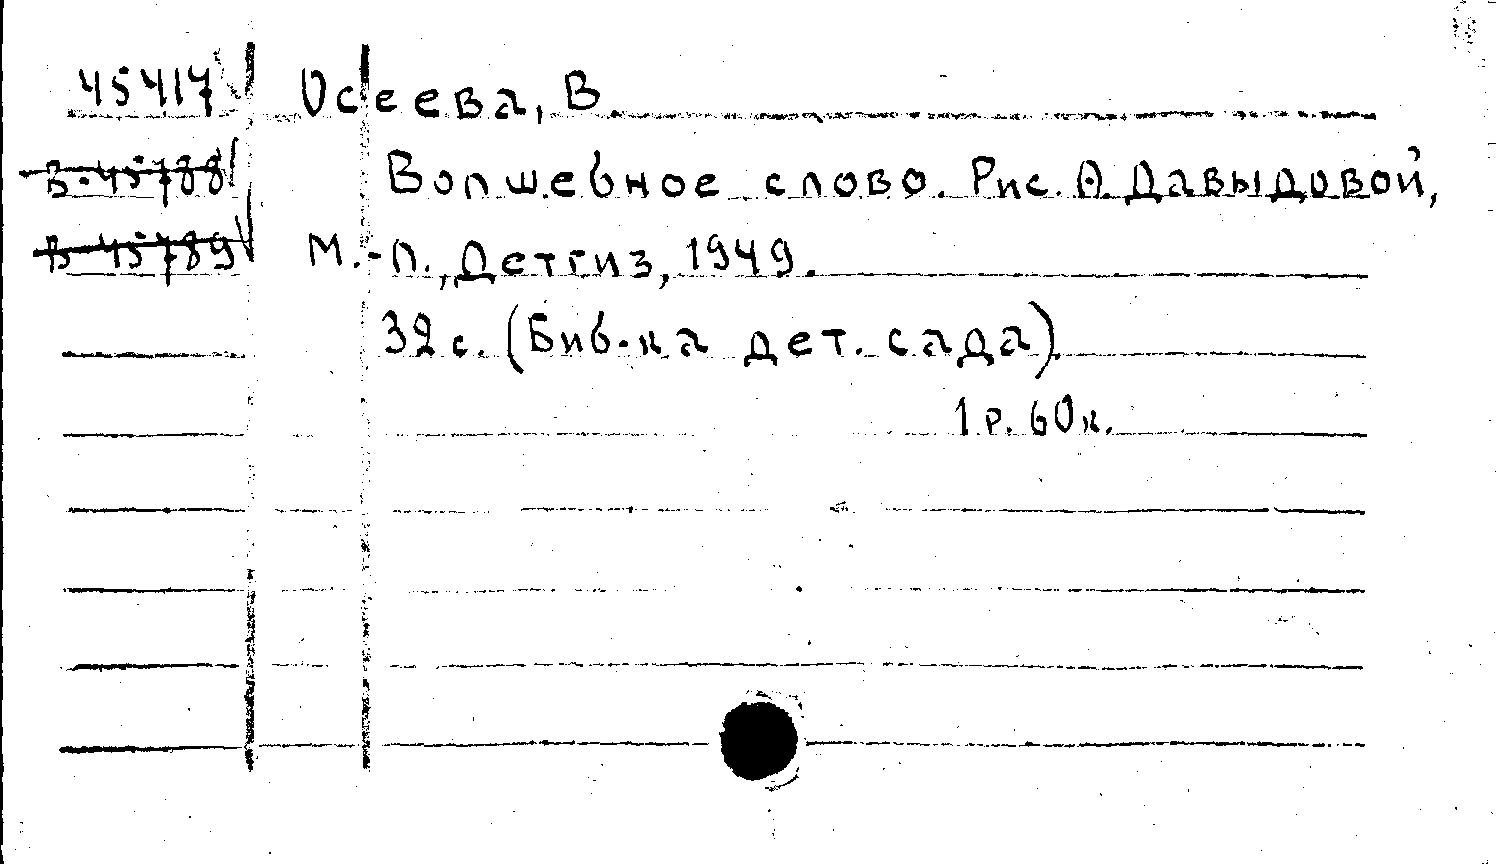 45417 Осеева, В.
В-45788 Волшебное слово. Рис. А. Давыдовой,
В-45789 М.-Л., Детгиз, 1949.
32 с. (Биб-ка дет. сада).
1 р. 60 к.